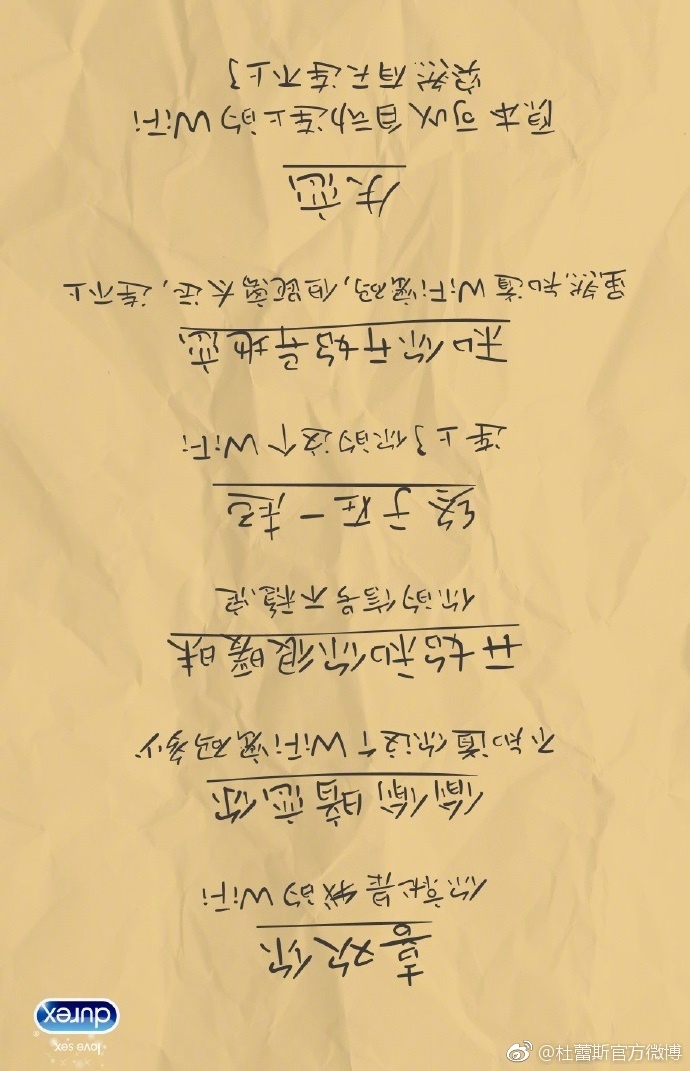 love sex
durex
喜欢你
你就是我的 WiFi
偷偷暗恋你
不知道你这个 WiFi 密码多少
开始和你很暧昧
你的信号不稳定
终于在一起
连上了你的这个 WiFi
和你开始异地恋
虽然知道 WiFi 密码，但距离太远，连不上
失恋
原本可以自动连上的 WiFi
突然有天连不上了
@杜蕾斯官方微博